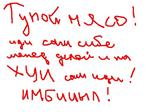 Тупой мясо!
иди сам себе
манец делай и на
ХУЙ сам иди!
ИМБИЦЫЛ!